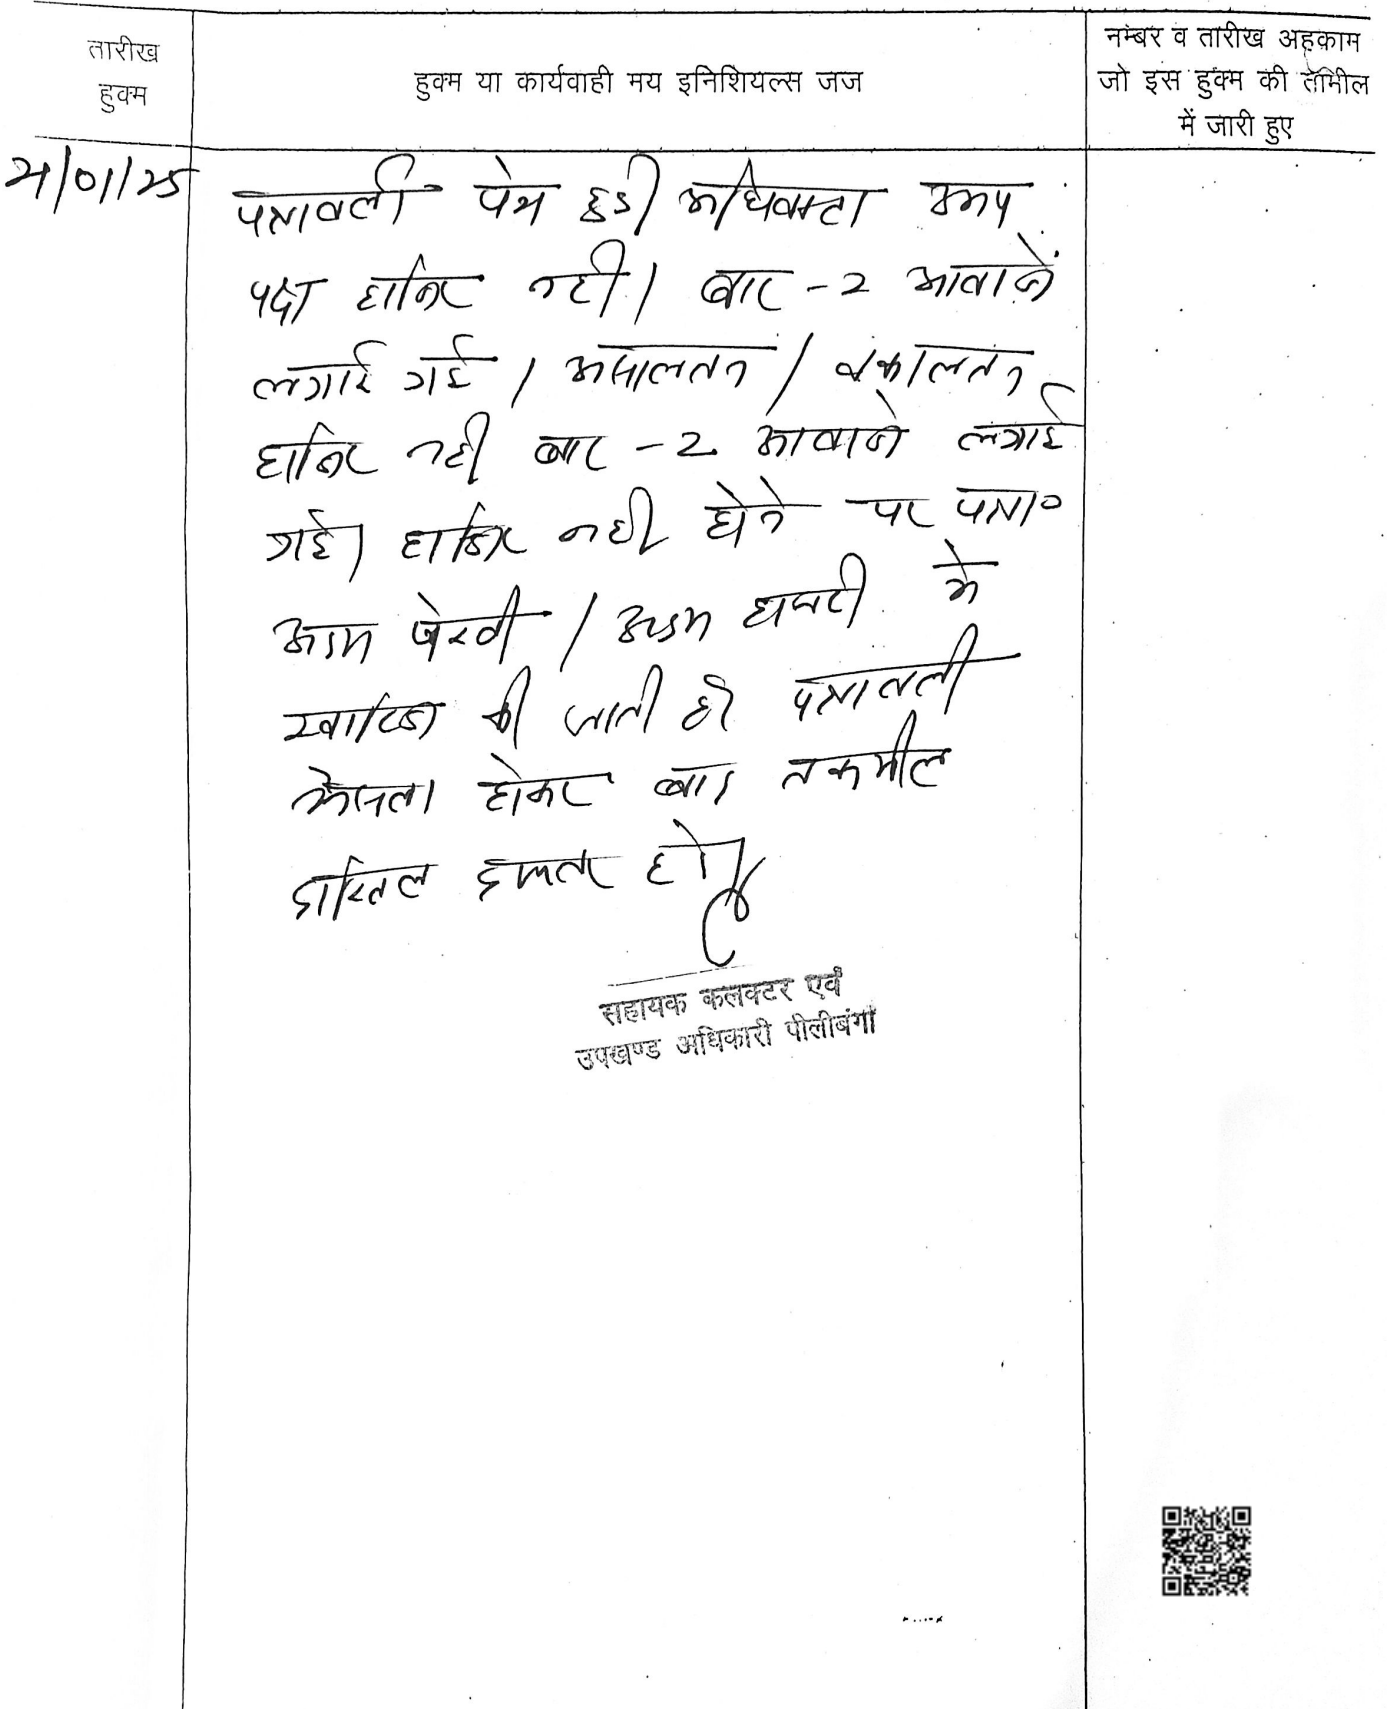 तारीख
हुक्म
हुक्म या कार्यवाही मय इनिशियल्स जज
नम्बर व तारीख अहकाम
जो इस हुक्म की तामिील
में जारी हुए
पत्रावली पेश हुई अधिवक्ता उभय
पक्ष हाजिर नही। बार-2 आवाजें
लगाई गई। असालतन / वकालतन
हाजिर नही बार-2 आवाजे लगाई
गई। हाजिर नही होने पर पत्रा०
अदम पेरवी / अदम हाजरी मे
खारिज की जाती है पत्रावली
फैसला होकर बाद तकमील
दाखिल दफ्तर हो।
सहायक कलक्टर एवं
उपखण्ड अधिकारी पीलीबंगा